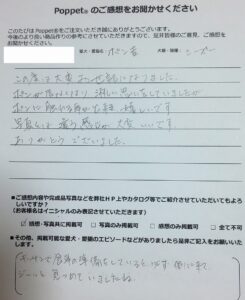 Poppet® のご感想をお聞かせください
このたびは Poppet®をご注文いただき誠にありがとうございます。
今後のより良い商品作りの参考にさせていただきますので、是非皆様のご意見、ご感想を
お聞かせください。
愛犬・愛猫名 ポン吉
犬種・猫種 シーズー
この度は大変お世話になりました。
ポンが居なくなり淋しい思いをしていましたが
ポンに触れる事が出来 嬉しいです
写真とは違う感じが大変いいです
ありがとうございました。
■ご感想内容や完成品写真などを弊社HP上やカタログ等でご紹介させていただいてもよろ
しいですか?
(お客様名はイニシャルのみ表記させていただきます)
☑ 感想・写真共に掲載可 □ 写真のみ掲載可 □ 感想のみ掲載可 □ 全て不可
■その他、掲載可能な愛犬・愛猫のエピソードなどがありましたら是非ご記入をお願いいた
します。
キッチンで食事の準備をしていると 必ず 側に来て
ジーッと見つめていましたね。